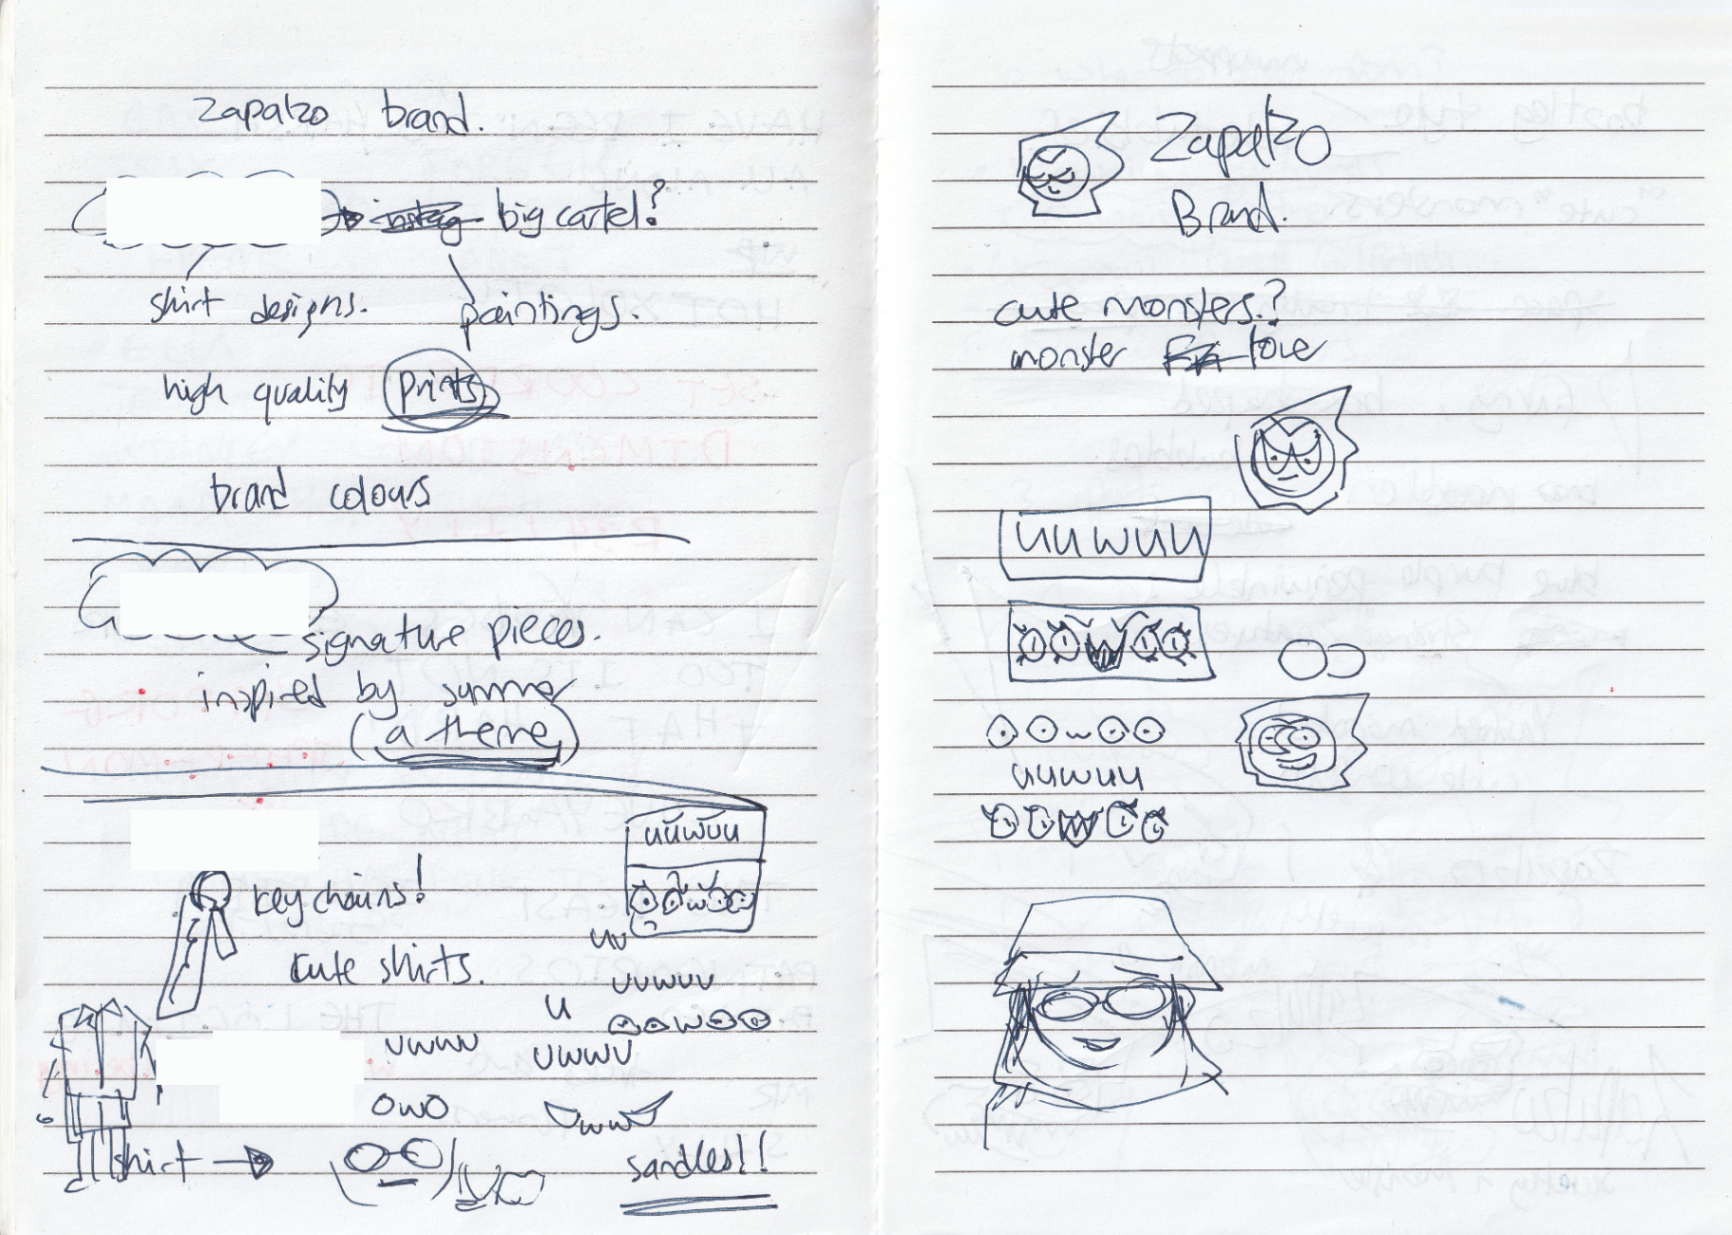 Zapalzo brand.
big cartel?
shirt designs. paintings.
high quality prints
brand colours
signature pieces.
inspired by summer
(a theme)
uuwuu
key chains!
uu
cute shirts.
uuwuu
u
uwwu
uwwu
OwO
shirt
sandles!!
Zapalzo
Brand.
cute monsters?
monster love
uuwuu
uuwuu